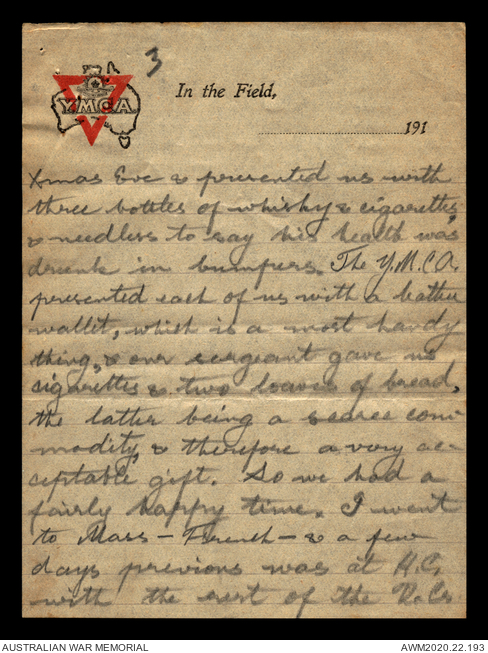 3
YMCA
In the Field,
191
Xmas Eve & presented us with
three bottles of whisky & cigarettes,
& needless to say his health was
drunk in bumpers. The Y.M.C.A.
presented each of us with a leather
wallet, which is a most handy
thing, & our sergeant gave us
cigarettes & two loaves of bread,
the latter being a scarce com-
modity, & therefore a very ac-
ceptable gift. So we had a
fairly happy time. I went
to Mass - French - & a few
days previous was at H.C.
with the rest of the R.Cs
AUSTRALIAN WAR MEMORIAL
AWM2020.22.193